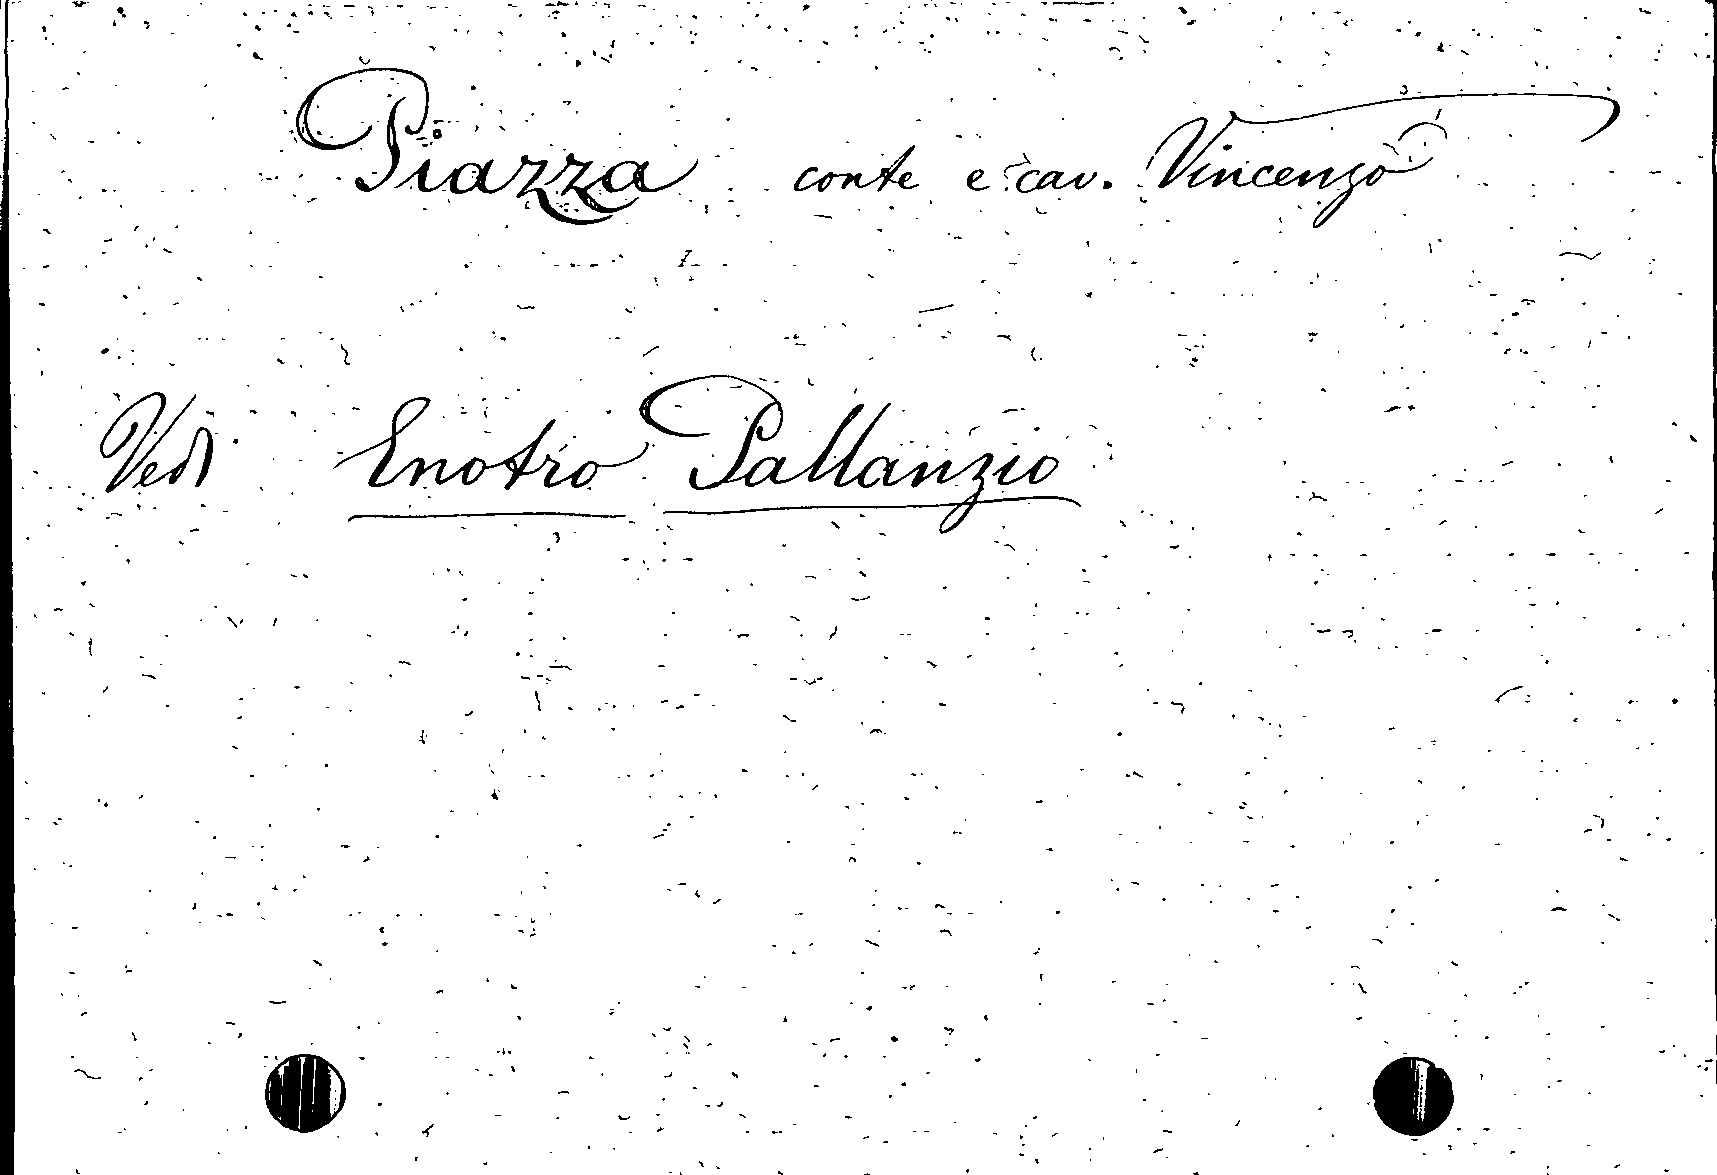 Piazza conte e cav. Vincenzo
Vedi Enotrio Pallanzio